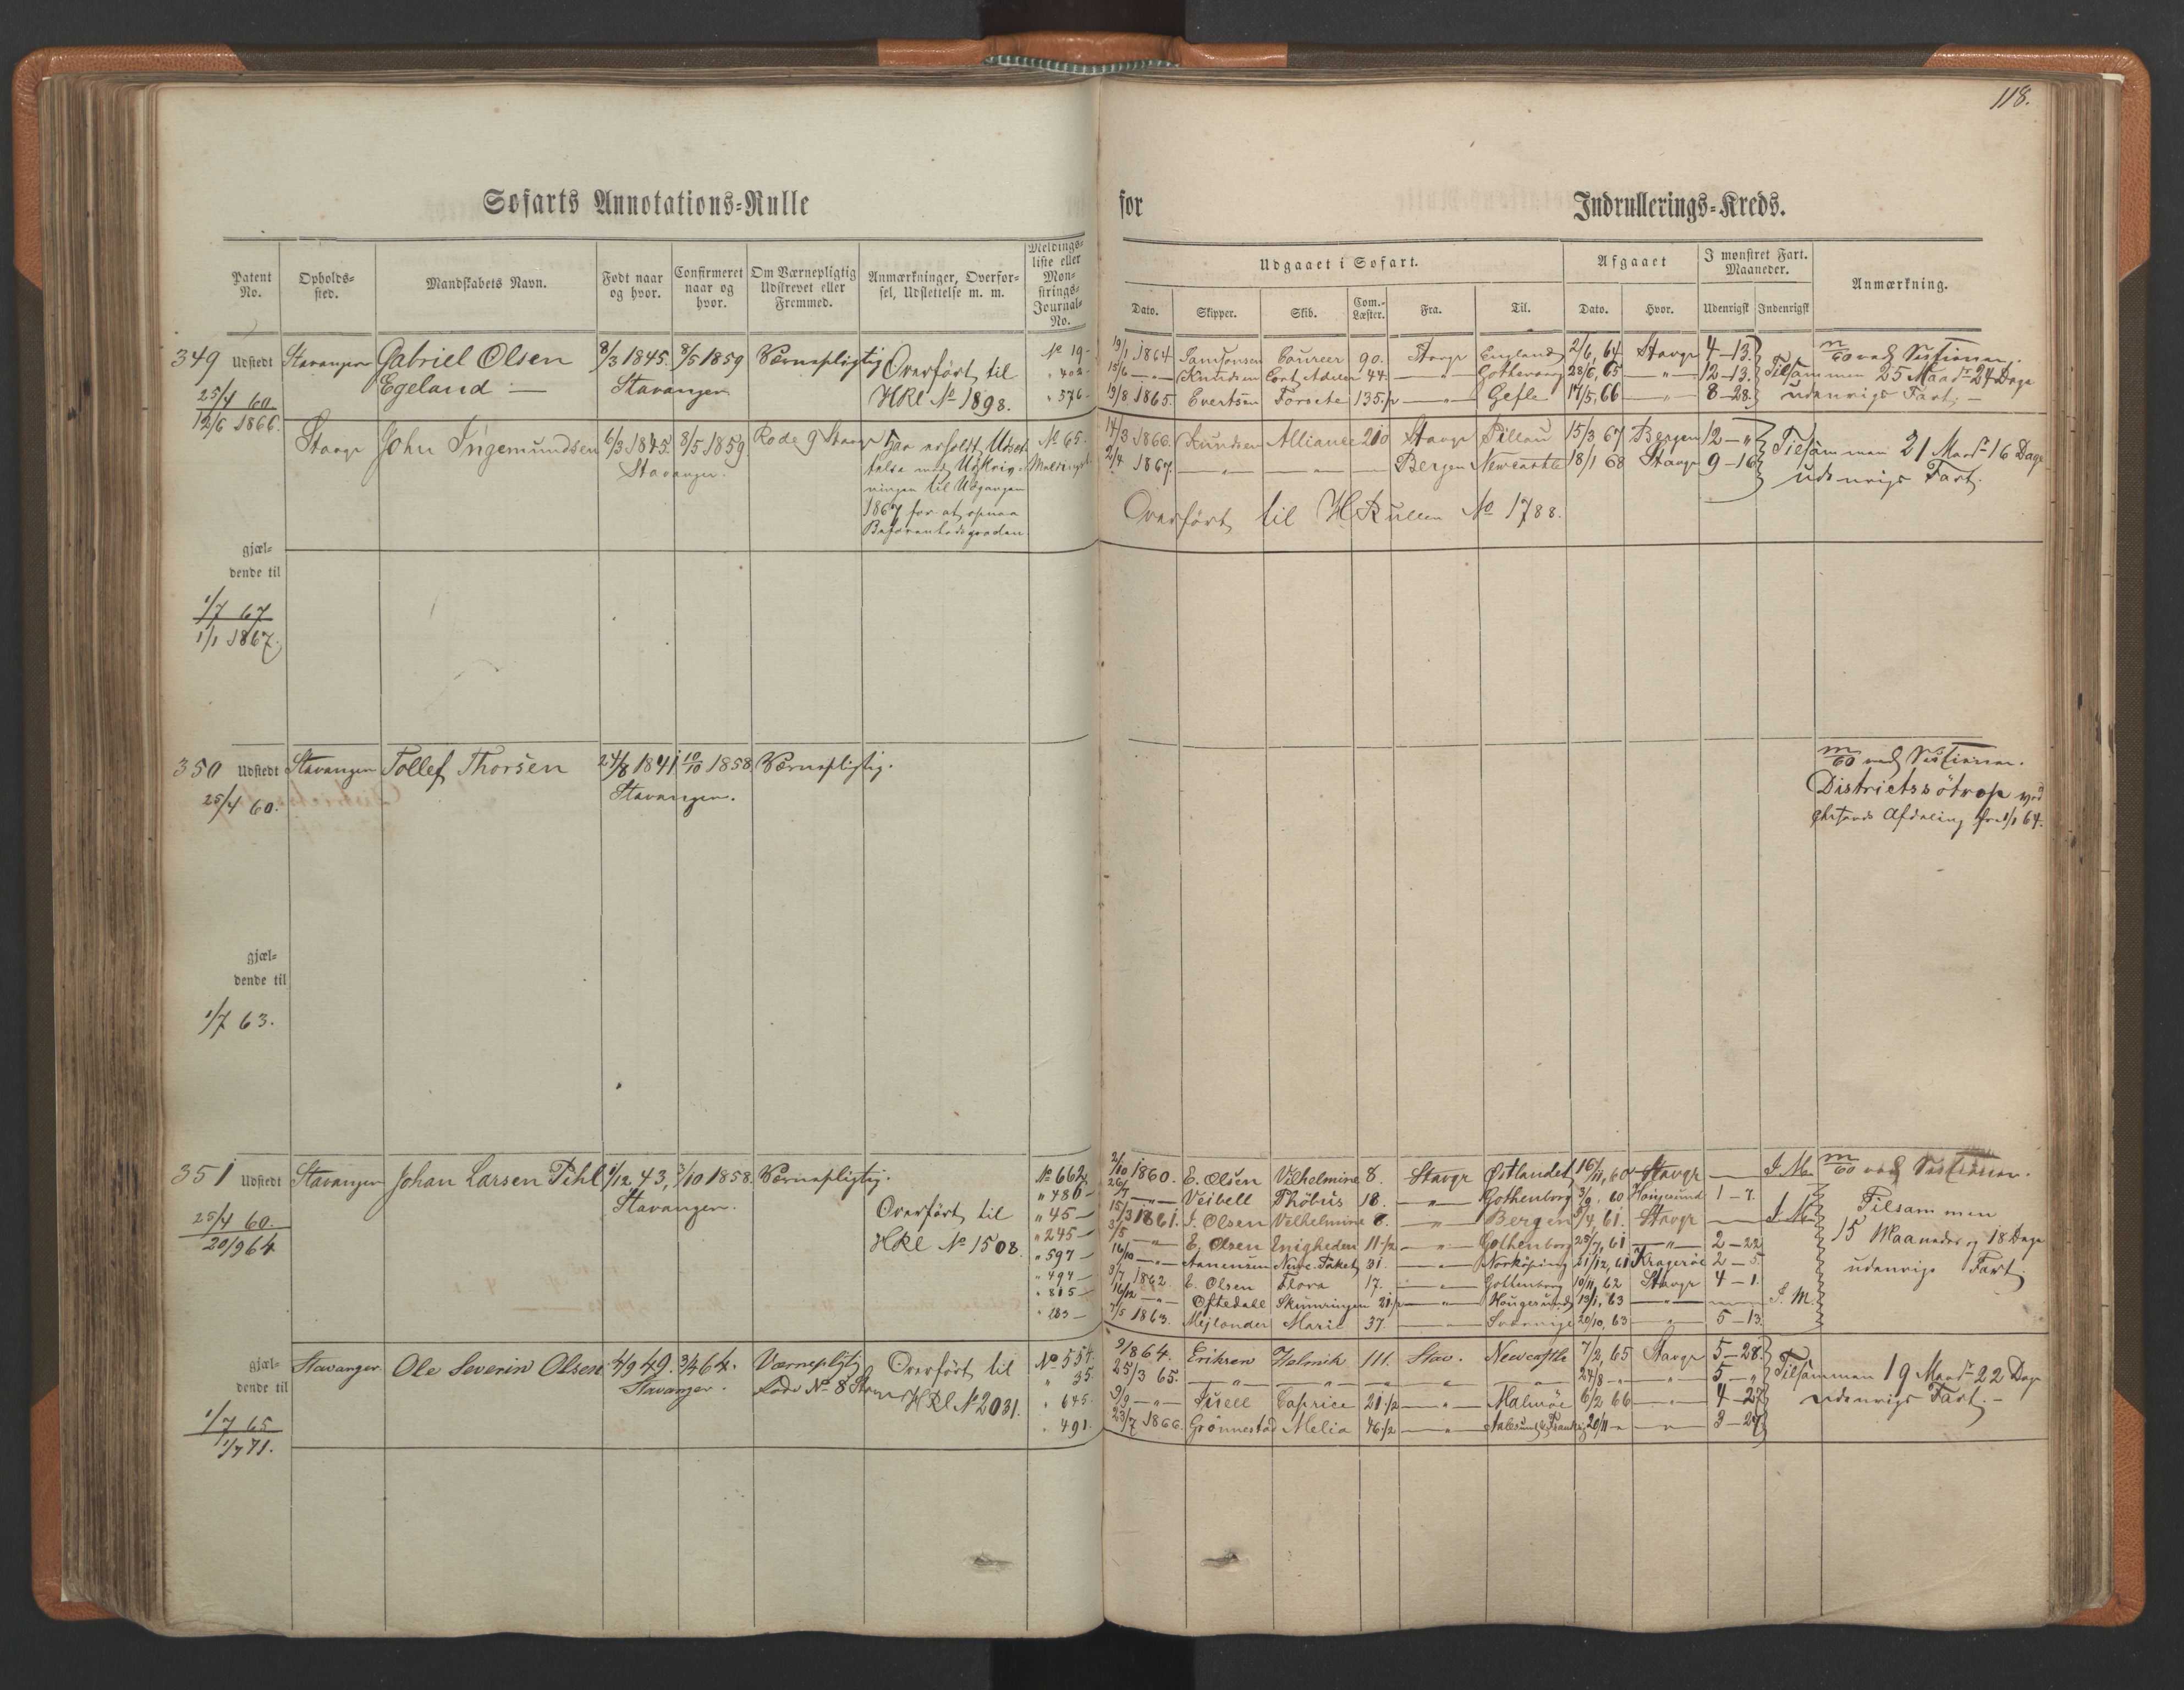 118.
Søfarts Annotations-Rulle for Indrullerings-Kreds.
Patent No. Opholds-sted. Mandskabets Navn. Født naar og hvor. Confirmeret naar og hvor. Om Værnepligtig Udskrevet eller Fremmed. Anmærkninger, Overførsel, Udslettelse m. m. Meldingsliste eller Mønstrings-Journal-No.
Udgaaet i Søfart. Afgaaet I mønstret Fart. Maaneder. Anmærkning.
Dato. Skipper. Skib. Com.-Læster. Fra. Til. Dato. Hvor. Udenrigsk Indenrigsk
349 Udstedt Stavanger Gabriel Olsen 8/3 1845. 8/5 1859 Værnepligtig Overført til No 19
Egeland Stavanger HRl No 1898.
25/4 60.
12/6 1866.
" 402
" 576
19/1 1864 Samsonsen Coureer 90. Stavgr England 2/6, 64 Stavgr 4-13.
15/6 - " - Knudsen Cort Adeler 44. - " - Gothenborg 28/6, 65 - " - 12-13. Tilsammen 25 Maadr 24 Dage
19/8 1865. Evertsen Forsete 135.½ - " - Gefle 14/5, 66 - " - 8-28. udenrigs Fart.
Stavgr John Ingemundsen 6/3 1845. 8/5 1859 Rode 9 Stavgr Har erholdt Udsæt- No 65.
Stavanger. telse med Udskriv-
ningen til Udgangen
1867 for at opnaa
Befarenhedsgraden
14/3 1866. Knudsen Alliance 210 Stavgr Pillau 15/3 67 Bergen 12 - " Tilsammen 21 Maadr 16 Dage
2/4 1867. - " - - " - Bergen Newcastle 18/1 68 Stavgr 9-16 udenrigs Fart.
Overført til HRullen No 1788.
gjæl-
dende til
1/7 67
1/1 1867.
350 Udstedt Stavanger Tollef Thorsen 24/8 1841 10/10 1858. Værnepligtig.
25/4 60. Stavanger.
m/60 ved Sessionen.
Districtssøtrop ved
Chrsands Afdeling fra 1/1 64.
gjæl-
dende til
1/7 63.
351 Udstedt Stavanger Johan Larsen Pihl 1/12 43, 3/10 1858. Værnepligtig. No 662
25/4 60. Stavanger. Overført til
20/9 64 HRl No 1508.
" 486
" 45
" 245
" 597
" 494
" 815
" 283
2/10 1860. E. Olsen Vilhelmine 8. Stavgr Østlandet 16/11, 60 Stavgr I. M. m/60 ved Sessionen.
26/7 - " - Veibell Phöbus 18. - " - Gothenborg 3/9. 60 Haugesund 1-7. Tilsammen
15/3 1861. J. Olsen Vilhelmine 8. - " - Bergen 5/4, 61. Stavgr I. M. 15 Maaneder og 18 Dage
3/5 - " - E. Olsen Enigheden 11.½ - " - Gothenborg 25/7, 61 - " - 2-22 udenrigs Fart.
16/10 - " - Asmensen Neve. Paket 31. - " - Norköping 21/12, 61 Kragerøe 2-5.
3/7 1862. E. Olsen Flora 17. - " - Gothenborg 10/11, 62 Stavgr 4-1.
16/12 - " - Oftedahl Skumringen 21.½ - " - Haugesund 13/1, 63 - " - I. M.
7/5 1863. Mejlander Marie 37. - " - Sverrige 20/10, 63 - " - 5-13.
gjæl-
dende til
Stavanger Ole Severin Olsen 4/9 49. 3/4 64. Værnepligtig Overført til No 554.
Stavanger. Rode No 8 Stavgr HRl No 2031.
1/7 65
1/7 71.
" 35.
" 645.
" 491.
9/1864. Eriksen Helmik 111. Stav. Newcastle 7/2, 65 Stavgr 5-28.
25/3 65. - " - - " - " " - " - 24/8 - " - " - 5 - " Tilsammen 19 Maadr 22 Dage
9/9 - " - Tisell Caprice 21.½ - " - Malmöe 6/2 66 - " - 4-27 udenrigs Fart.
23/7 1866. Grønnestad Melia 46.½ - " - Aalesund & Frankrig 20/11 - " - " - 3-27